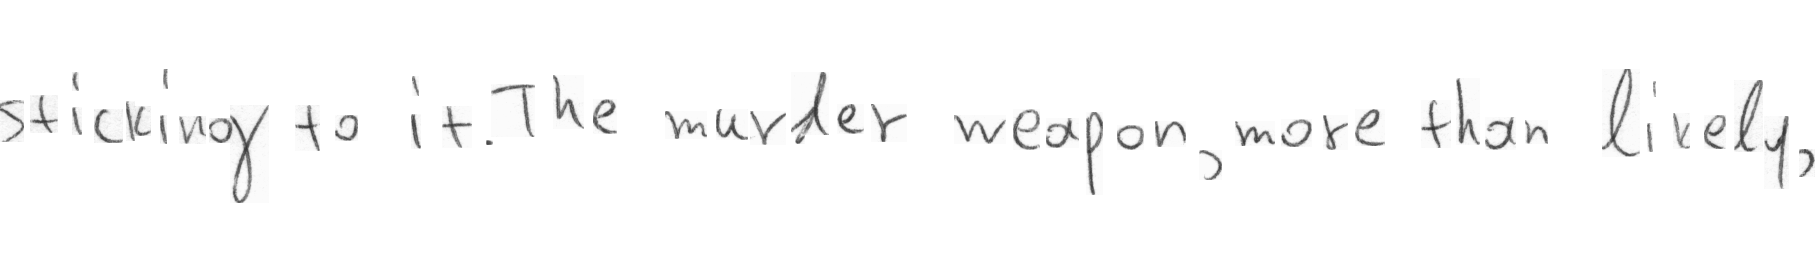 sticking to it. The murder weapon, more than likely,